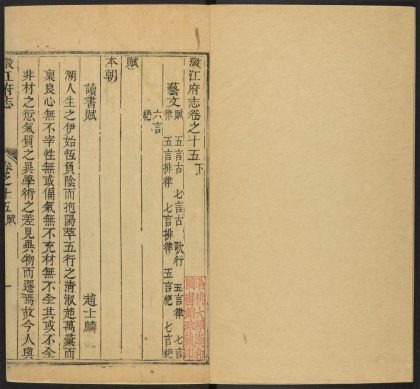 澂江府志卷之十五下
藝文
賦 五言古 七言古 歌行 五言律 七言
律 五言排律 七言排律 五言絶 七言絶
六言
賦
本朝
讀書賦 趙士麟
溯人生之伊始恆負陰而抱陽萃五行之清淑超萬彙而
稟良心無不宰性無或偏氣無不充材無不全其或不全
非材之愆氣質之異學術之差見異物而遷焉故今人與
澂江府志
卷之十五 賦
一